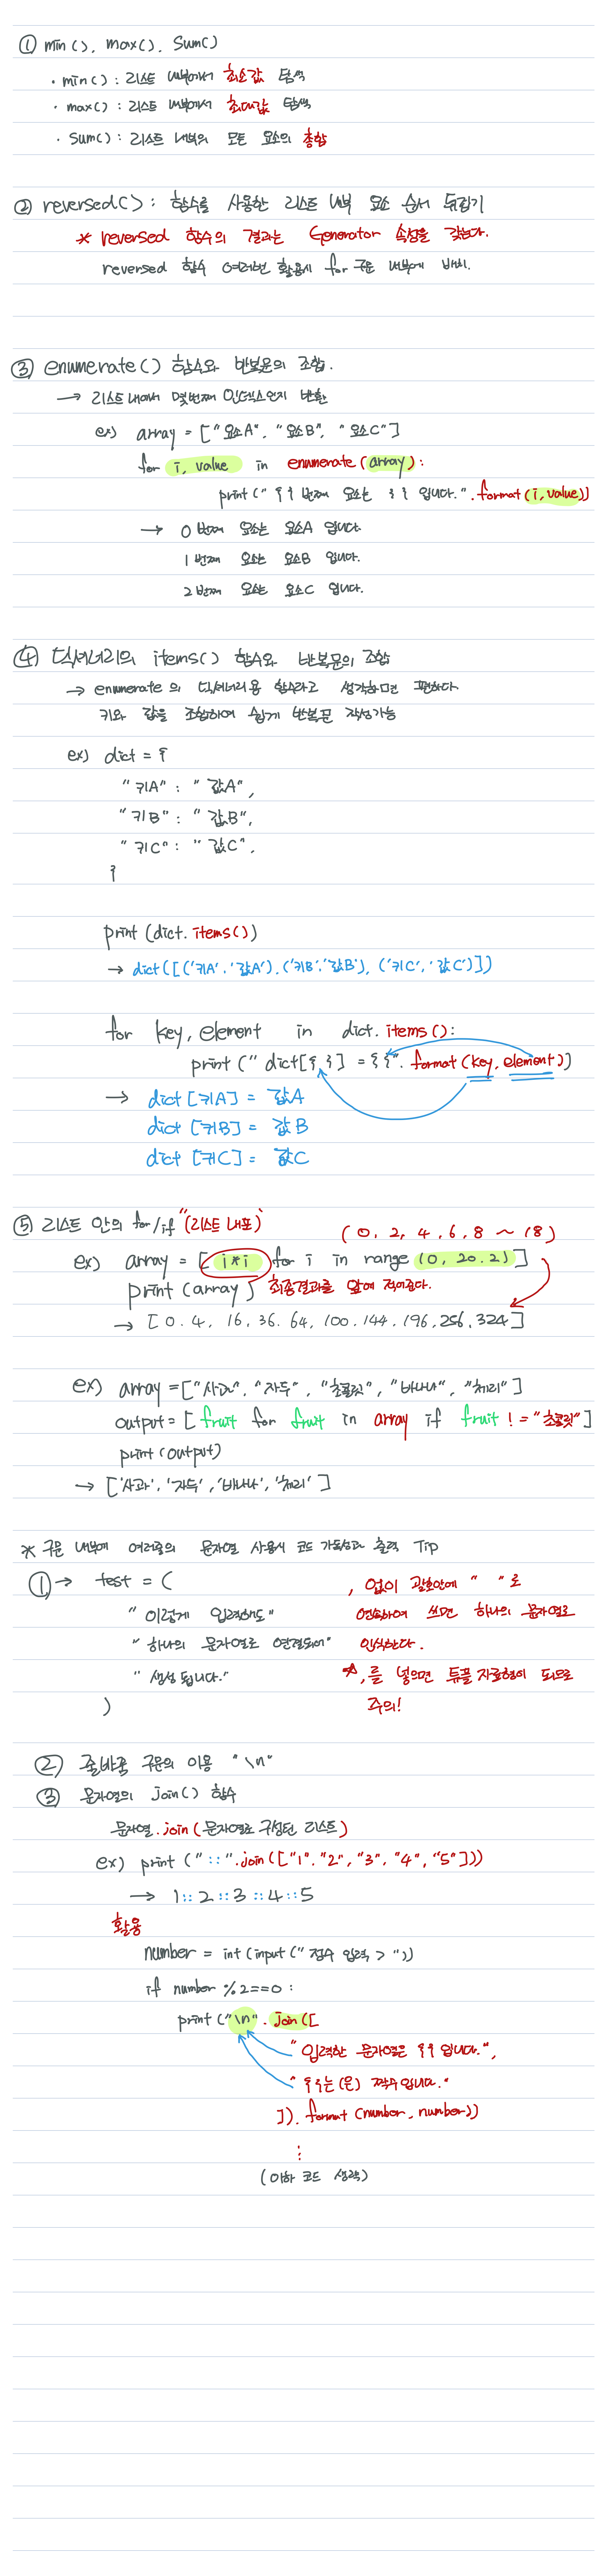 ① min(), max(), Sum()
· min() : 리스트 내부에서 최소값 탐색
· max() : 리스트 내부에서 최대값 탐색
· Sum() : 리스트 내부의 모든 요소의 총합
② reversed() : 함수를 사용한 리스트 내부 요소 순서 뒤집기
* reversed 함수의 결과는 Generator 속성을 갖는다.
reversed 함수 여러번 활용시 for 구문 내부에 배치.
③ enumerate() 함수와 반복문의 조합.
→ 리스트 내에서 몇번째 인덱스인지 반환
ex) array = ["요소A", "요소B", "요소C"]
for i, value in enumerate(array):
print("{} 번째 요소는 {} 입니다.".format(i, value))
→ 0 번째 요소는 요소A 입니다.
1 번째 요소는 요소B 입니다.
2 번째 요소는 요소C 입니다.
④ 딕셔너리의 items() 함수와 반복문의 조합
→ enumerate 의 딕셔너리용 함수라고 생각하면 편하다
키와 값을 조합하여 쉽게 반복문 작성가능
ex) dict = {
"키A" : "값A",
"키B" : "값B",
"키C" : "값C",
}
print(dict.items())
→ dict([('키A', '값A'), ('키B', '값B'), ('키C', '값C')])
for key, element in dict.items():
print("dict[{}] = {}".format(key, element))
→ dict [키A] = 값A
dict [키B] = 값B
dict [키C] = 값C
⑤ 리스트 안의 for/if "(리스트 내포)"
(0, 2, 4, 6, 8 ~ 18)
ex) array = [i*i for i in range(0, 20, 2)]
print(array) 최종결과를 앞에 적어준다.
→ [0, 4, 16, 36, 64, 100, 144, 196, 256, 324]
ex) array = ["사과", "자두", "초콜릿", "바나나", "체리"]
output = [fruit for fruit in array if fruit != "초콜릿"]
print(output)
→ ['사과', '자두', '바나나', '체리']
* 구문 내부에 여러줄의 문자열 사용시 코드 가독성과 출력 Tip
① → test = ( , 없이 괄호안에 " "로
"이렇게 입력해도" 연속하여 쓰면 하나의 문자열로
"하나의 문자열로 연결되어" 인식한다.
"생성 됩니다." *,를 넣으면 튜플 자료형이 되므로
) 주의!
② 줄바꿈 구문의 이용 "\n"
③ 문자열의 join() 함수
문자열.join(문자열로 구성된 리스트)
ex) print("::".join(["1", "2", "3", "4", "5"]))
→ 1::2::3::4::5
활용
number = int(input("정수 입력 > "))
if number % 2 == 0 :
print("\n".join([
"입력한 문자열은 {} 입니다.",
"{}는(은) 짝수입니다."
]).format(number, number))
⋮
(이하 코드 생략)